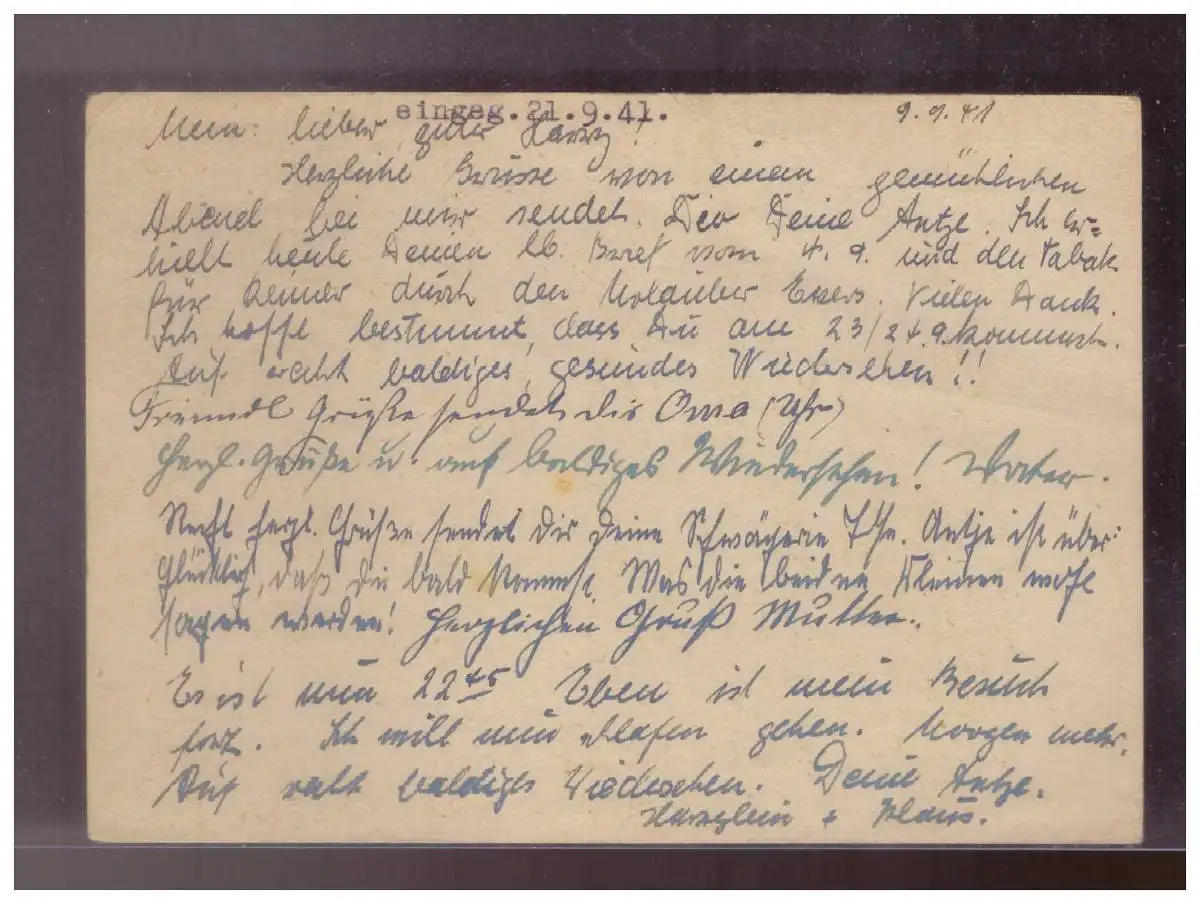 eingeg.21.9.41.
9.9.41
Mein lieber guter Harry!
Herzliche Grüsse von einem gemütlichen
Abend bei mir sendet Dir Deine Antje. Ich er=
hielt heute Deinen lb. Brief vom 4.9. und den Tabak
für durch den Urlauber Evers. Vielen Dank.
Ich hoffe bestimmt, dass Du am 23/24.9. kommst.
Auf recht baldiges, gesundes Wiedersehen!!
Freundl Grüße sendet dir Oma (Uhr)
Herzl. Grüße u. auf baldiges Wiedersehen! Vater.
Recht herzl. Grüße sendet dir deine Schwägerin Ilse. Antje ist über
glücklich, daß du bald kommst. Was die beiden Kleinen wohl
sagen werden! Herzlichen Gruß Mutter.
Es ist nun 22 45 Eben ist mein Besuch
fort. Ich will nun schlafen gehen. Morgen mehr.
Auf recht baldiges Wiedersehen. Deine Antje.
Harrylein + Klaus.